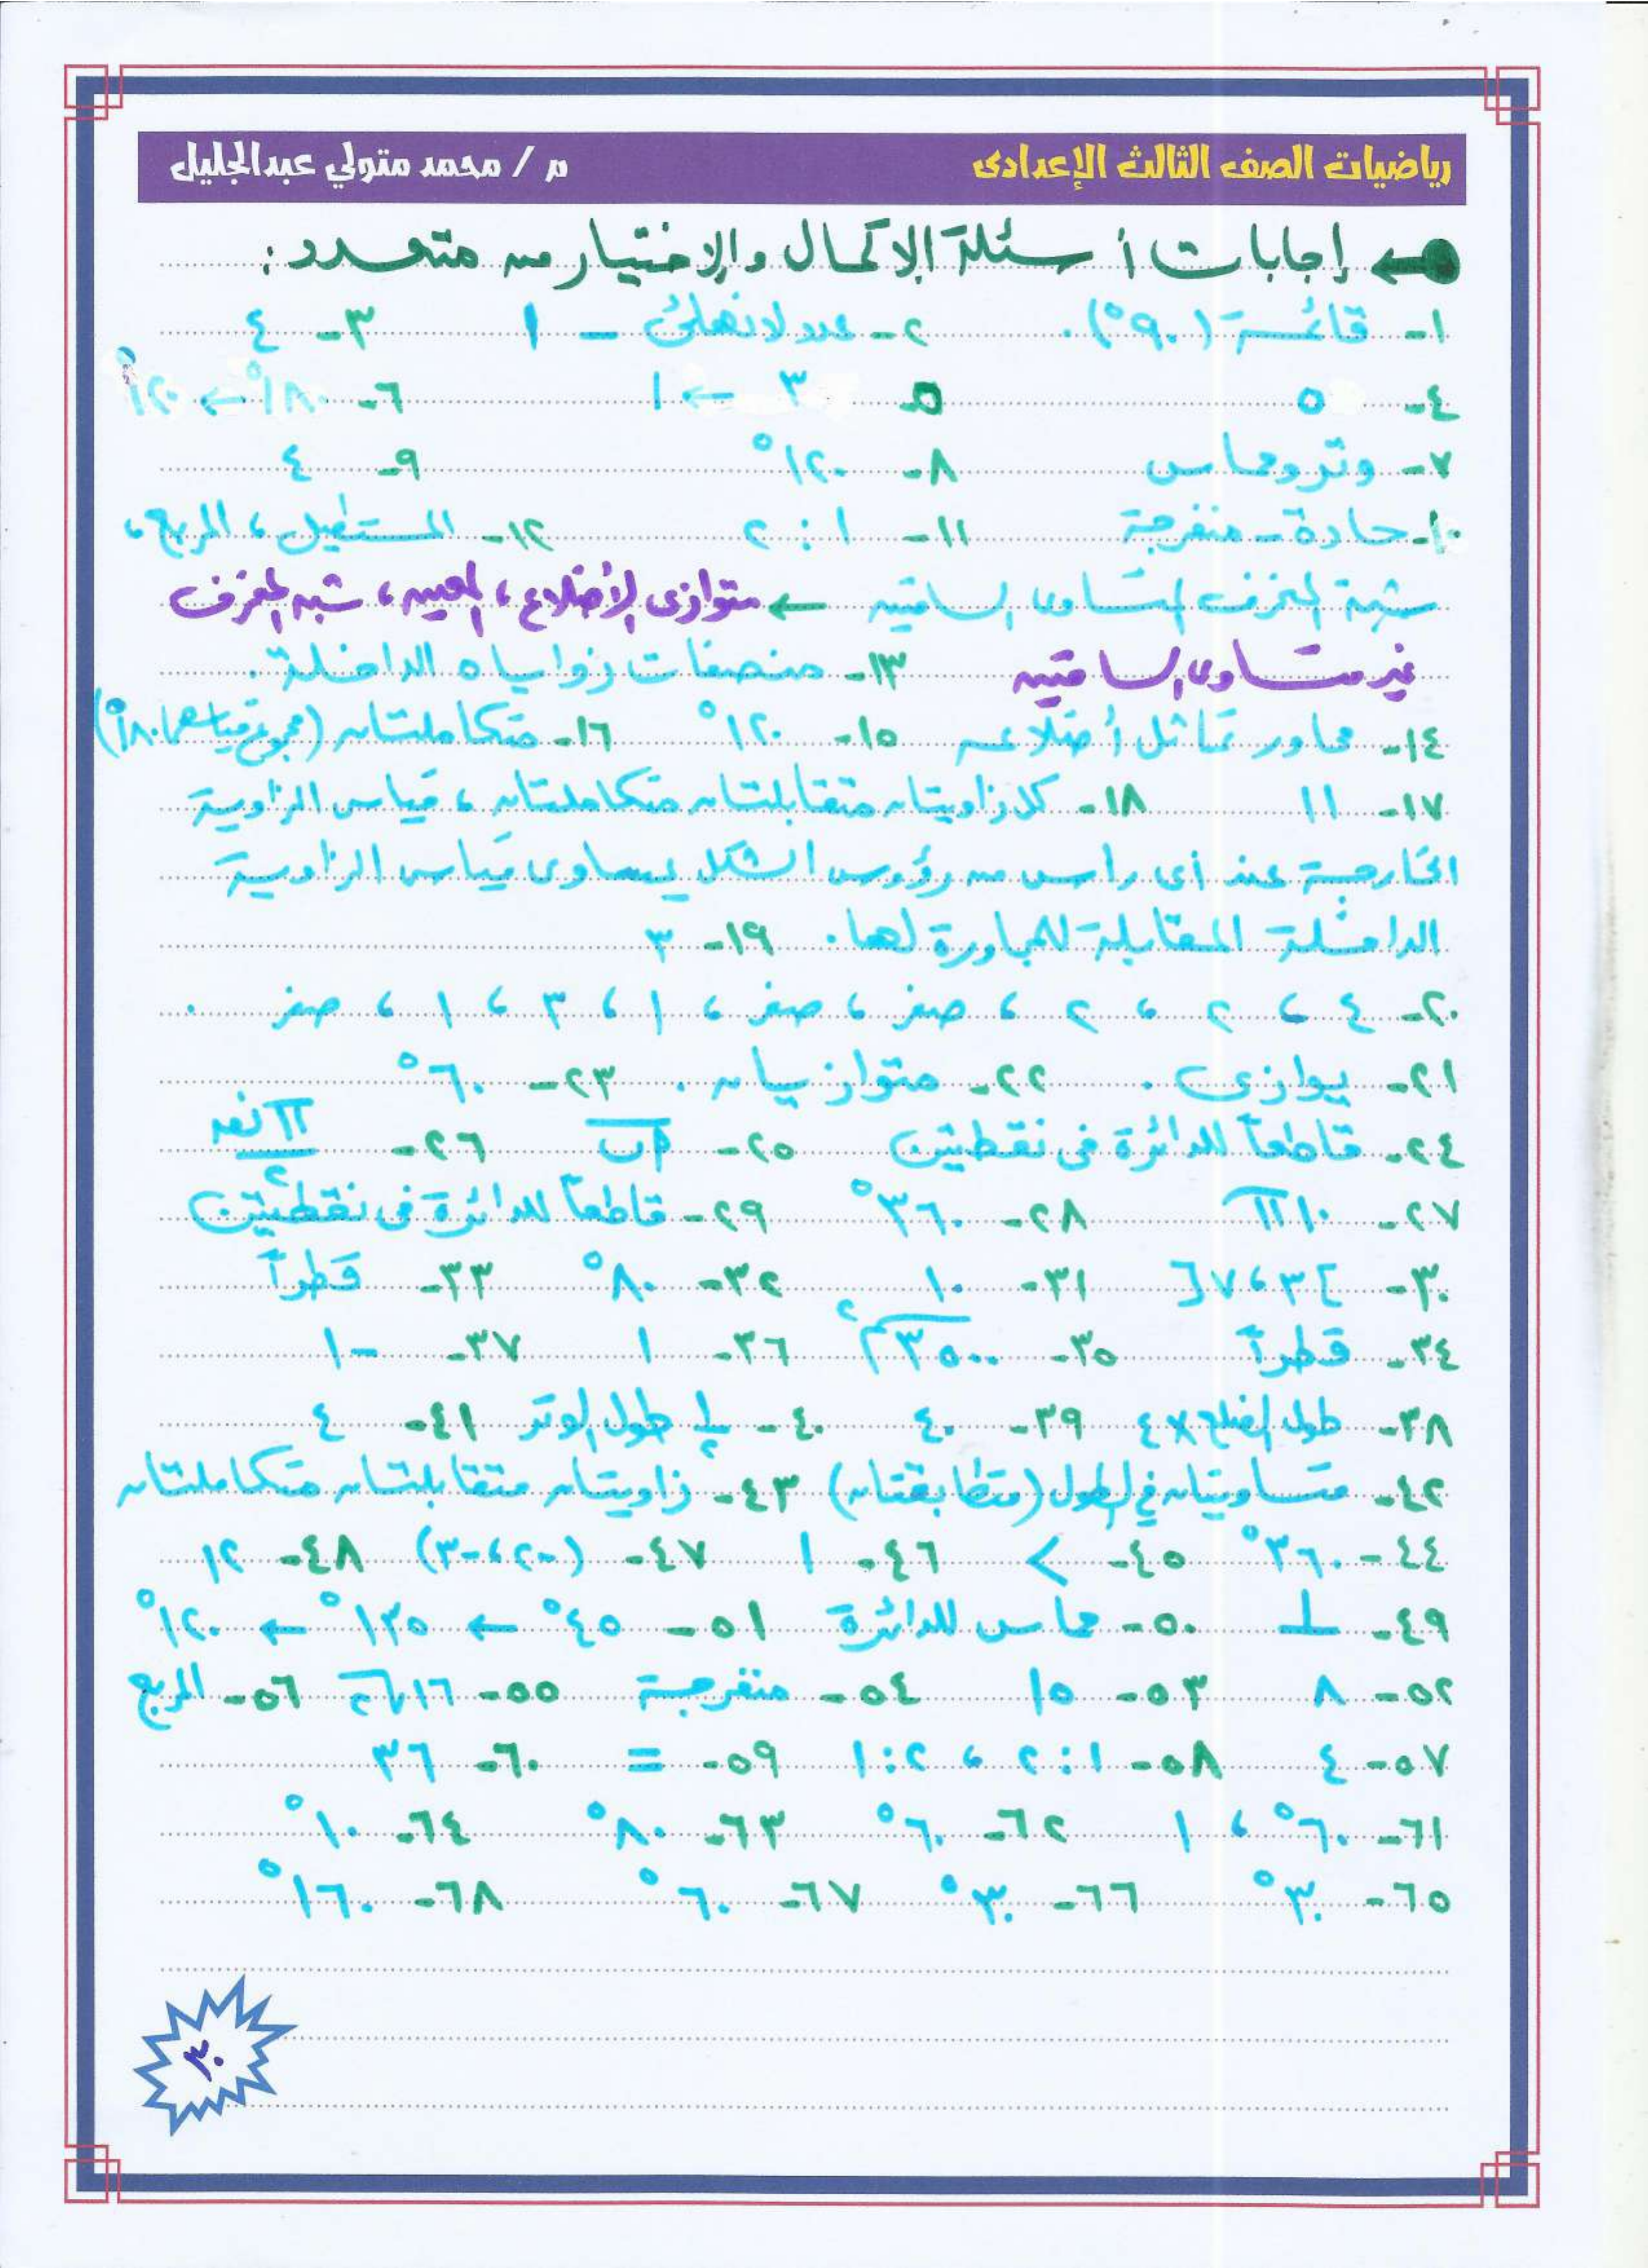 رياضيات الصف الثالث الإعدادى م / محمد متولي عبدالجليل
إجابات أسئلة الإكمال والإختيار من متعدد :
١- قائمة (٩٠°) . ٢- عدد لانهائى – ١ ٣- ٤
٤- ٥ ٥- ٣ ← ١ ٦- ١٨٠° ← ١٢٠°
٧- وتر ومماس ٨- ١٢٠° ٩- ٤
١٠- حادة – منفرجة ١١- ١ : ٢ ١٢- المستطيل ، المربع ،
شبه المنحرف المتساوى الساقين ← متوازى الأضلاع ، المعين ، شبه المنحرف
غير متساوى الساقين ١٣- منصفات زواياه الداخلة .
١٤- محاور تماثل أضلاعه ١٥- ١٢٠° ١٦- متكاملتان (مجموع قياسهما ١٨٠°)
١٧- ١١ ١٨- كل زاويتان متقابلتان متكاملتان ، قياس الزاوية
الخارجة عند أى رأس من رؤوس الشكل يساوى قياس الزاوية
الداخلة المقابلة للمجاورة لها . ١٩- ٣
٢٠- ٤ ، ٢ ، ٢ ، صفر ، صفر ، ١ ، ٣ ، ١ ، صفر .
٢١- يوازى . ٢٢- متوازيان . ٢٣- ٦٠°
٢٤- قاطعاً للدائرة فى نقطتين ٢٥- أب ٢٦- π نق / ٢
٢٧- ١٠ π ٢٨- ٣٦٠° ٢٩- قاطعاً للدائرة فى نقطتين
٣٠- ]٣ ، ٧[ ٣١- ١٠ ٣٢- ٨٠° ٣٣- قطراً
٣٤- قطراً ٣٥- ٣٥٠٠ م٢ ٣٦- ١ ٣٧- -١
٣٨- طول الضلع × ٤ ٣٩- ٤٠ ٤٠- ١/٢ طول الوتر ٤١- ٤
٤٢- متساويتان فى الطول (متطابقتان) ٤٣- زاويتان متقابلتان متكاملتان
٤٤- ٣٦٠° ٤٥- > ٤٦- ١ ٤٧- (-٢ ، -٣) ٤٨- ١٢
٤٩- ⊥ ٥٠- مماس للدائرة ٥١- ٤٥° ← ١٣٥° ← ١٢٠°
٥٢- ٨ ٥٣- ١٥ ٥٤- منفرجة ٥٥- ١٦√٢ ٥٦- المربع
٥٧- ٤ ٥٨- ١ : ٢ ، ٢ : ١ ٥٩- = ٦٠- ٣٦
٦١- ٦٠° ، ١ ٦٢- ٦٠° ٦٣- ٨٠° ٦٤- ١٠°
٦٥- ٣٠° ٦٦- ٣٠° ٦٧- ٦٠° ٦٨- ١٦٠°
٣٠